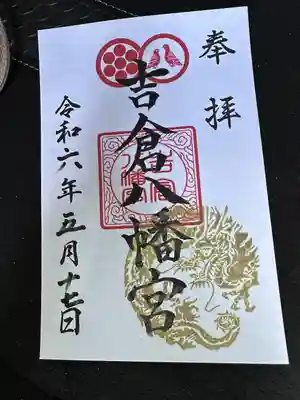 奉拝
吉倉八幡宮
令和六年五月十七日